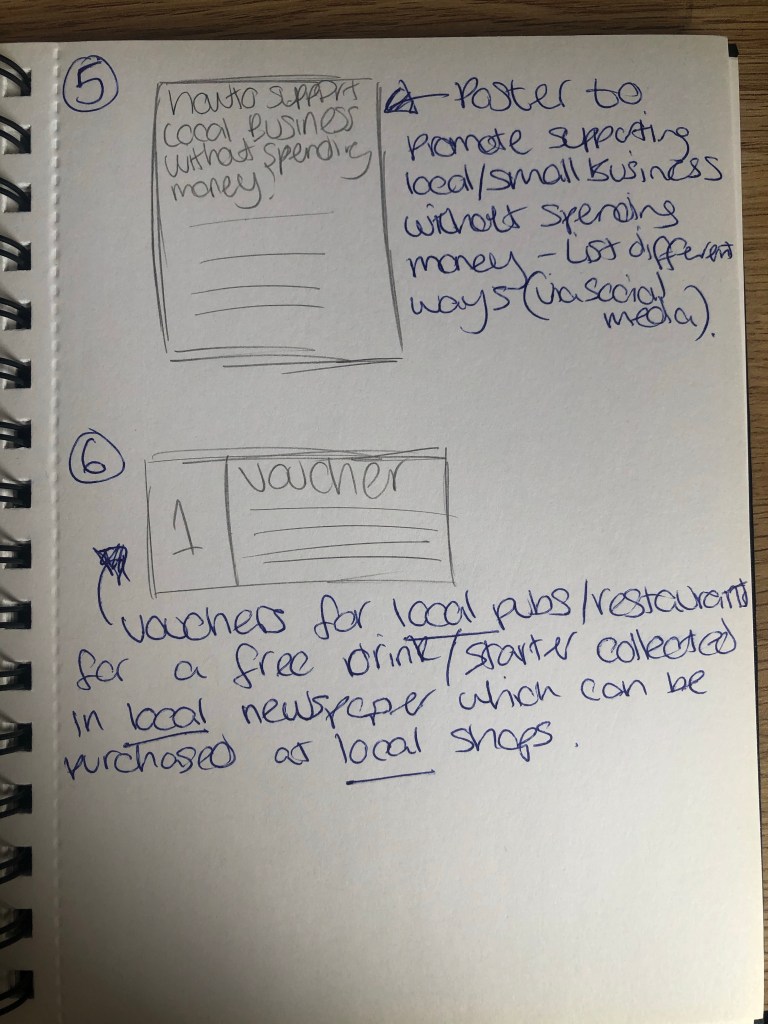 5
how to support
local business
without spending
money!
Poster to
promote supporting
local/small business
without spending
money - List different
ways (via social
media).
6
1
voucher
vouchers for local pubs/restaurant
for a free drink/starter collected
in local newspaper which can be
purchased at local shops.